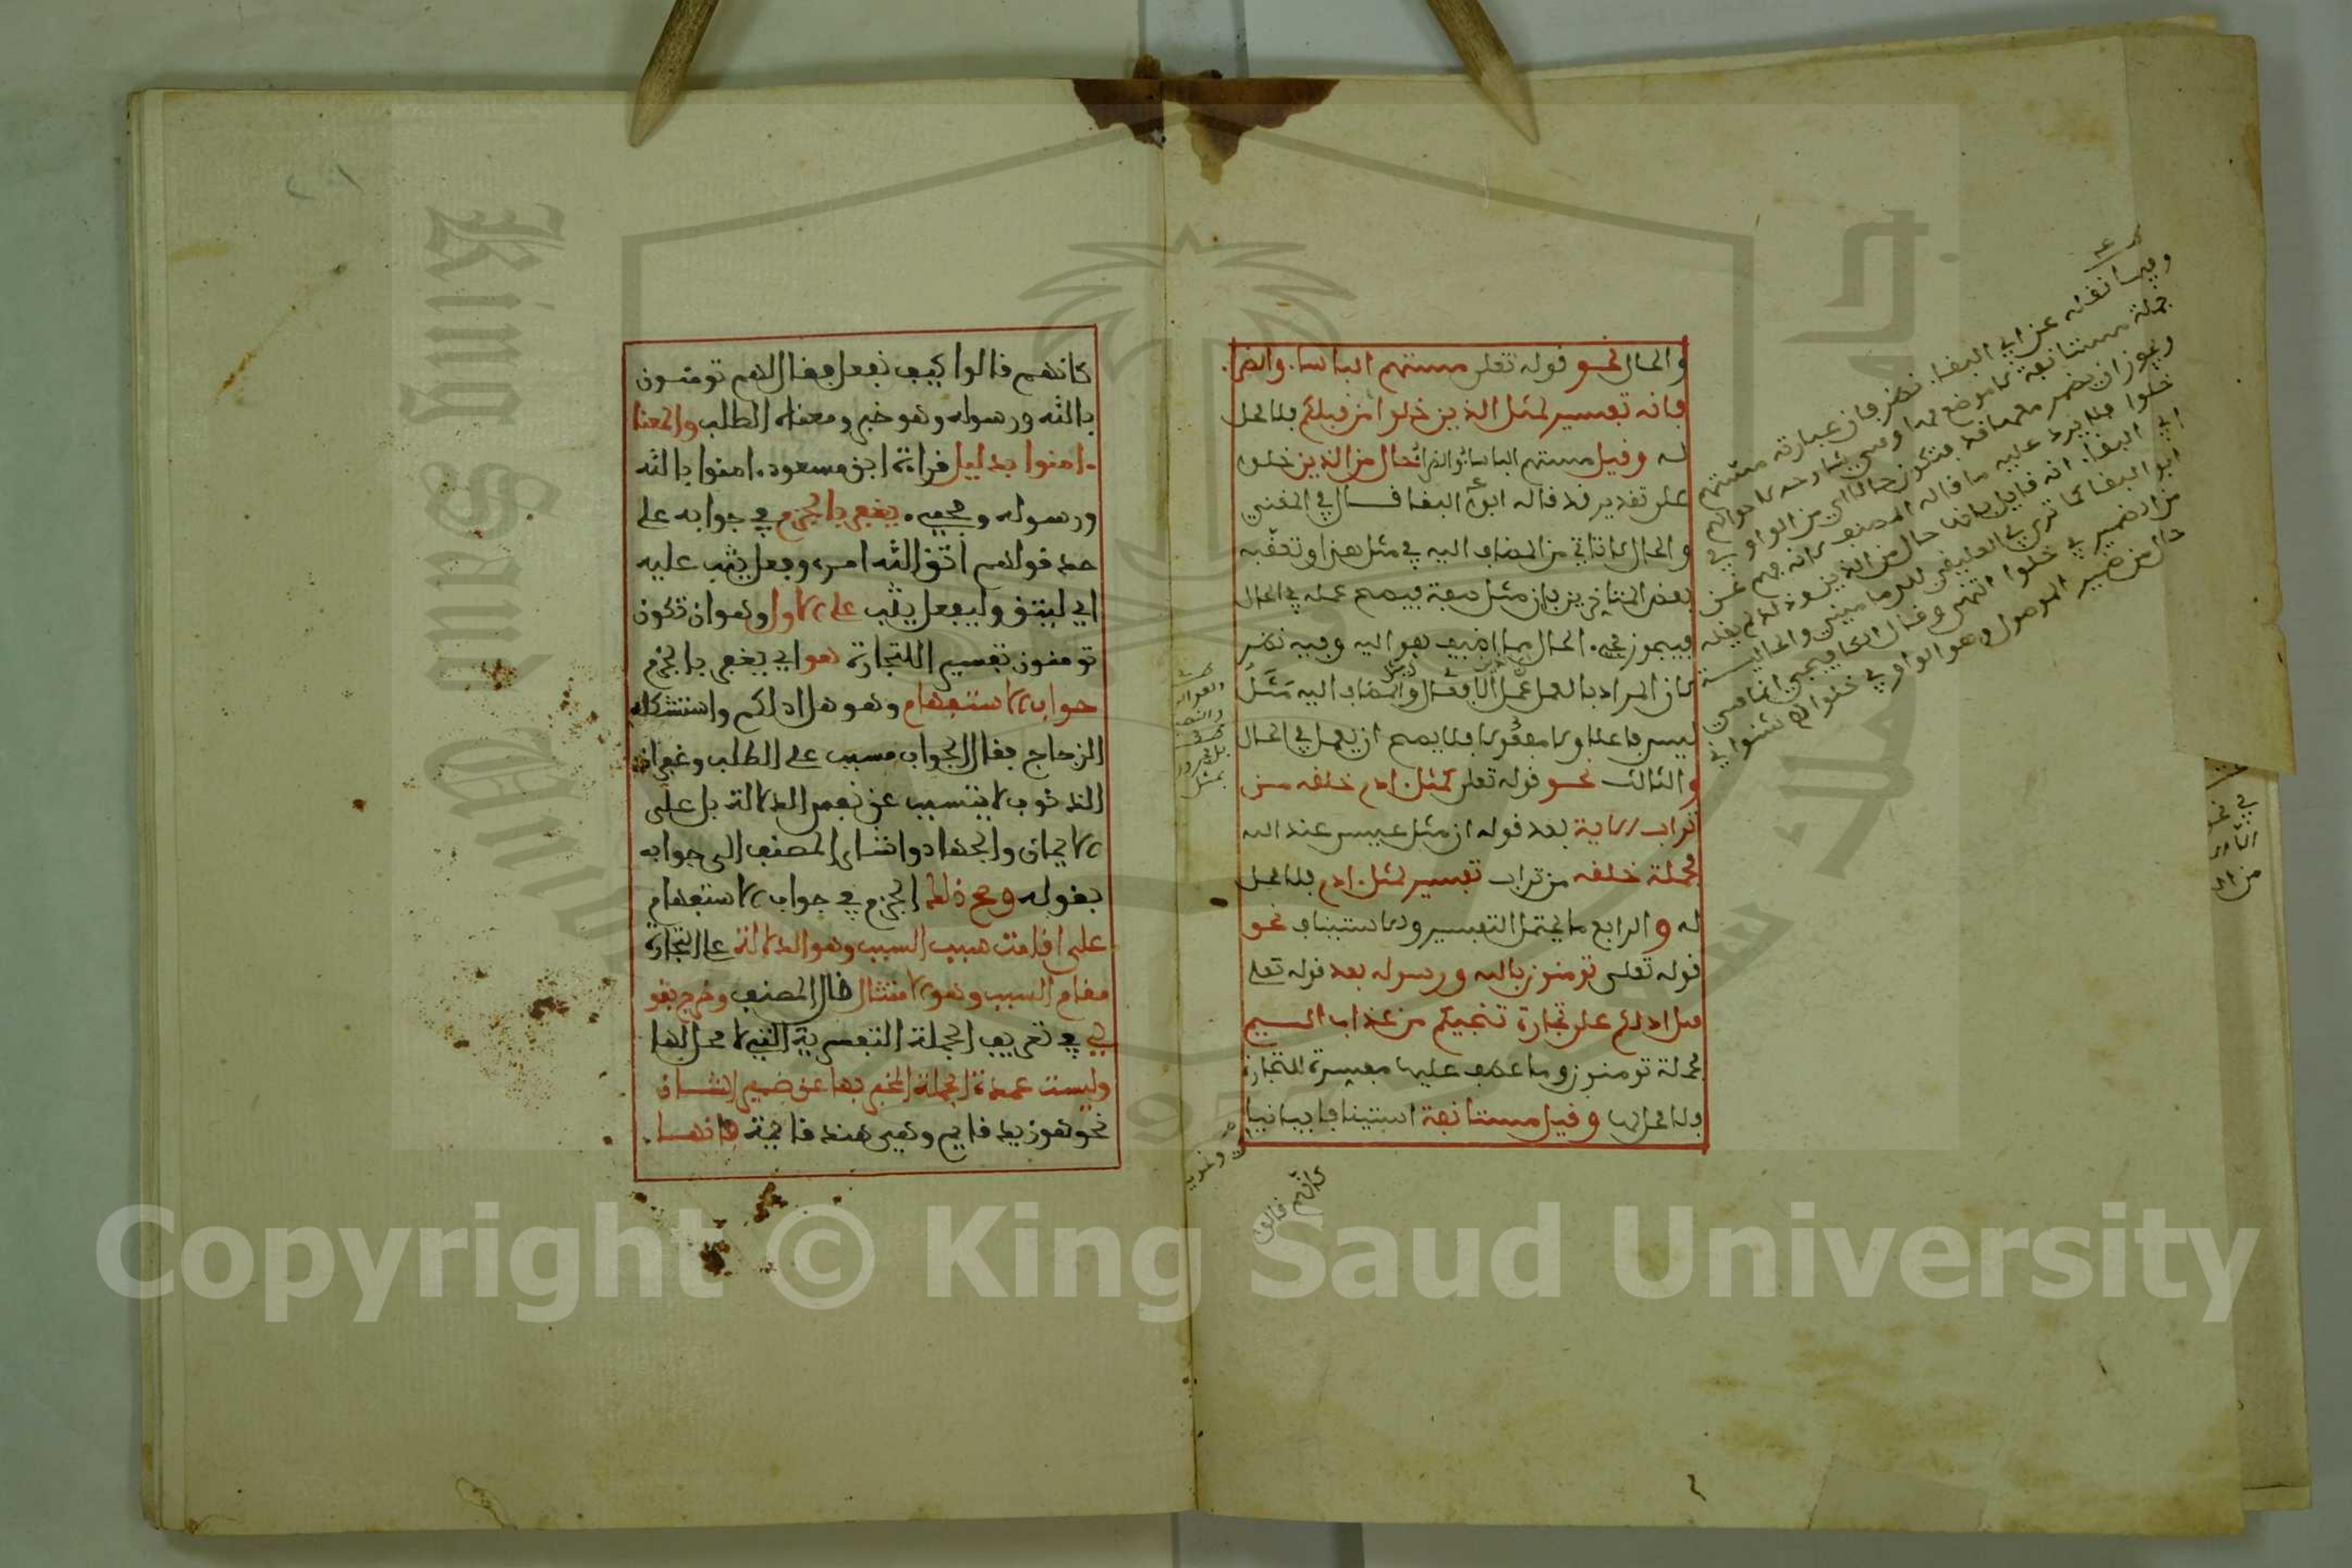 والحال نحو قوله تعلى مستهم الباسا. والضرا.
فانه تفسير لمثل الذين خلوا من قبلكم فلا محل
له وقيل مستهم الباسا. والضرا. حال من الذين خلوا
على تقدير قد قاله ابو البقا قال في المغني
والحال لا تاتي من المضاف اليه في مثل هذا وتعقبه
بعض المتاخرين بان مثل صفة فيصح عمله في الحال
فيجوز مجي. الحال مما اضيف هو اليه وفيه نظر
لان المراد بالعمل عمل الافعال والمضاف اليه مثل
ليس فاعلا ولا مفعولا فلا يصح ان يعمل في الحال
والثالث نحو قوله تعلى كمثل ادم خلقه من
تراب الاية بعد قوله ان مثل عيسى عند الله
فجملة خلقه من تراب تفسير لمثل ادم فلا محل
له والرابع ما يحتمل التفسير والاستيناف نحو
قوله تعلى تومنون بالله ورسوله بعد قوله تعلى
هل ادلكم على تجارة تنجيكم من عذاب اليم
فجملة تومنون وما عطف عليها مفسرة للتجارة
فلا محل لها وقيل مستانفة استينافا بيانيا
كانهم قالوا
وفيما نقله عن ابي البقا. نظر فان عبارته مستهم
جملة مستانفة لا موضع لها وهي شارحة لاحوالهم
ويجوز ان يضمر معها قد فتكون حالا اي من الواو في
خلوا فلا يرد عليه ما قاله المصنف لانه فهم عن
ابي البقا. انه قايل بانها حال من الذين ولم يقله
ابو البقا كما ترى
كانهم قالوا كيف نفعل فقال لهم تومنون
بالله ورسوله وهو خبر ومعناه الطلب والمعنا
امنوا بدليل قراءة ابن مسعود. امنوا بالله
ورسوله ومجي. يغفر بالجزم في جوابه على
حد قولهم اتق الله امر. وفعل يثب عليه
اي ليتق وليفعل يثب على الاول وهو ان تكون
تومنون تفسير اللتجارة هو اي يغفر بالجزم
جواب الاستفهام وهو هل ادلكم واستشكله
الزجاج فقال الجواب مسبب على الطلب وغفران
الذنوب لا يتسبب عن نفس الدلالة بل على
الايمان والجهاد واشار المصنف الى جوابه
بقوله وصح ذلك الجزم في جواب الاستفهام
على اقامت سبب السبب وهو الدلالة على التجارة
مقام السبب وهو الامتثال قال المصنف وخرج بقو
لي في تعريف الجملة التفسرية التي لا محل لها
وليست عمدة الجملة المخبر بها عن ضمير الشان
نحو هو زيد قايم وهي هند قايمة فانها
Copyright © King Saud University